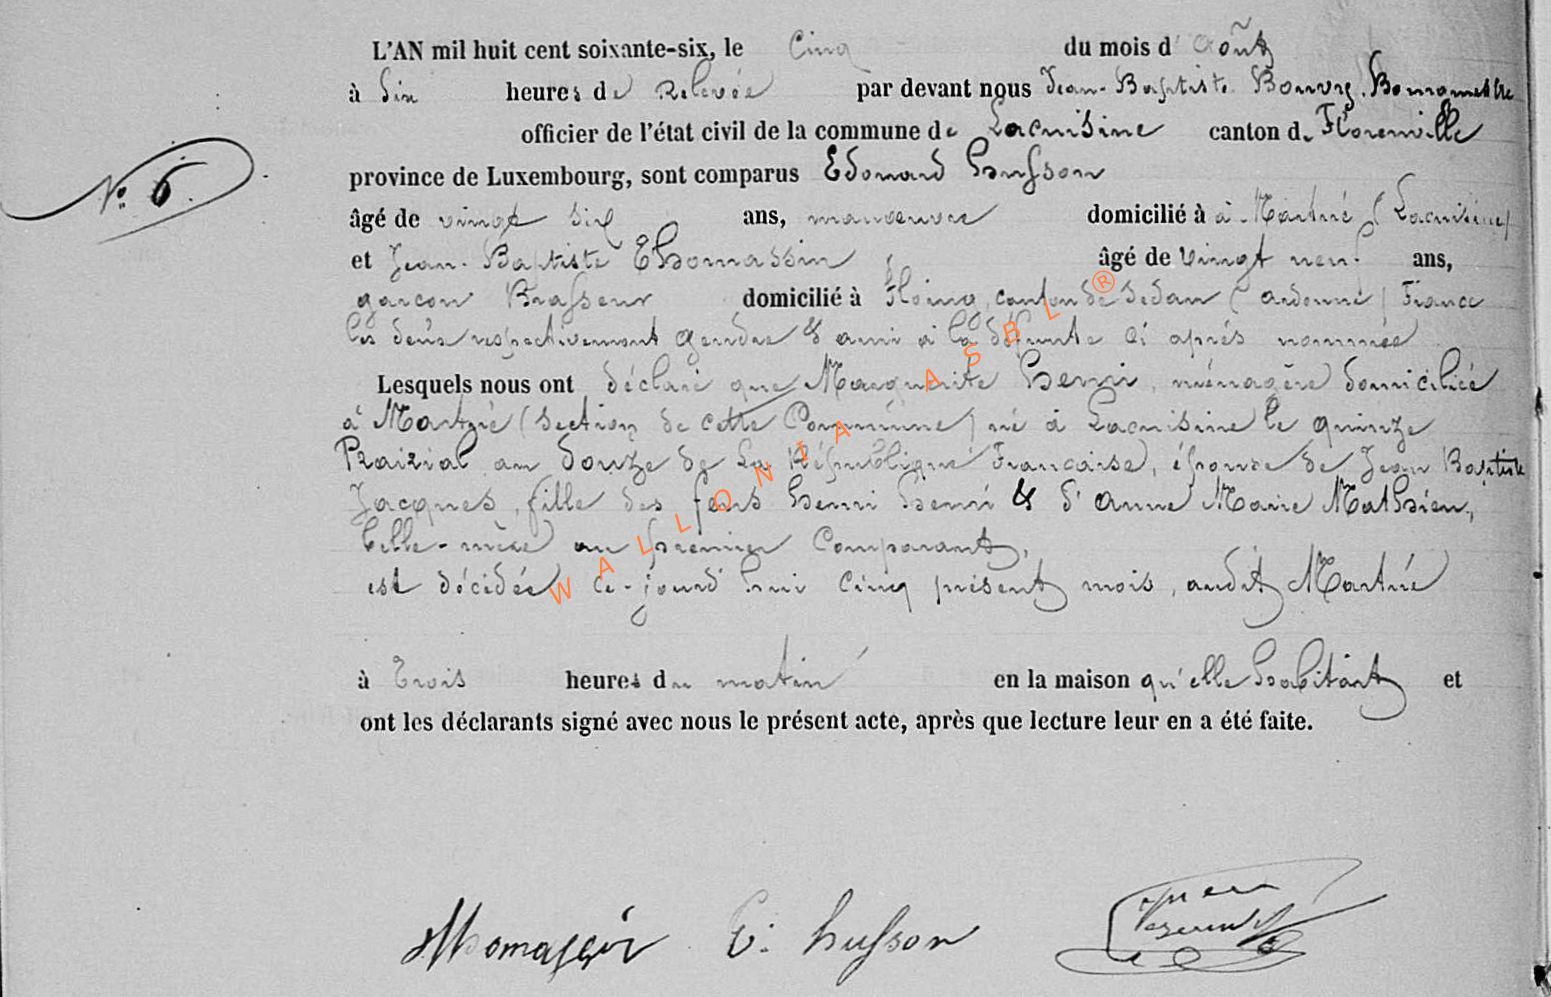 L'AN mil huit cent soixante-six, le Cinq du mois d'Août
à Six heures de Relevée par devant nous Jean-Baptiste Bourg, Bourgmestre
officier de l'état civil de la commune de Lacuisine canton de Florenville
N° 6.
province de Luxembourg, sont comparus Edouard Husson
âgé de vingt six ans, manoeuvre domicilié à à Martué (Lacuisine)
et Jean-Baptiste Thomassin âgé de vingt neuf ans,
garçon Brasseur domicilié à Floing, canton de Sedan (ardenne) France
les deux respectivement gendre & ami à la défunte ci après nommée
Lesquels nous ont déclaré que Marguerite Henri, ménagère domiciliée
à Martué (section de cette Commune) né à Lacuisine le quinze
Prairial an douze de La République Française, épouse de Jean Baptiste
Jacques, fille des feus Henri Henri & d'anne Marie Mathieu,
belle-mère au premier Comparant,
est décédée ce-jourd'hui cinq présent mois, audit Martué
à Trois heures du matin en la maison qu'elle habitait et
ont les déclarants signé avec nous le présent acte, après que lecture leur en a été faite.
Thomassin E. husson
WALLONIA ASBL ®